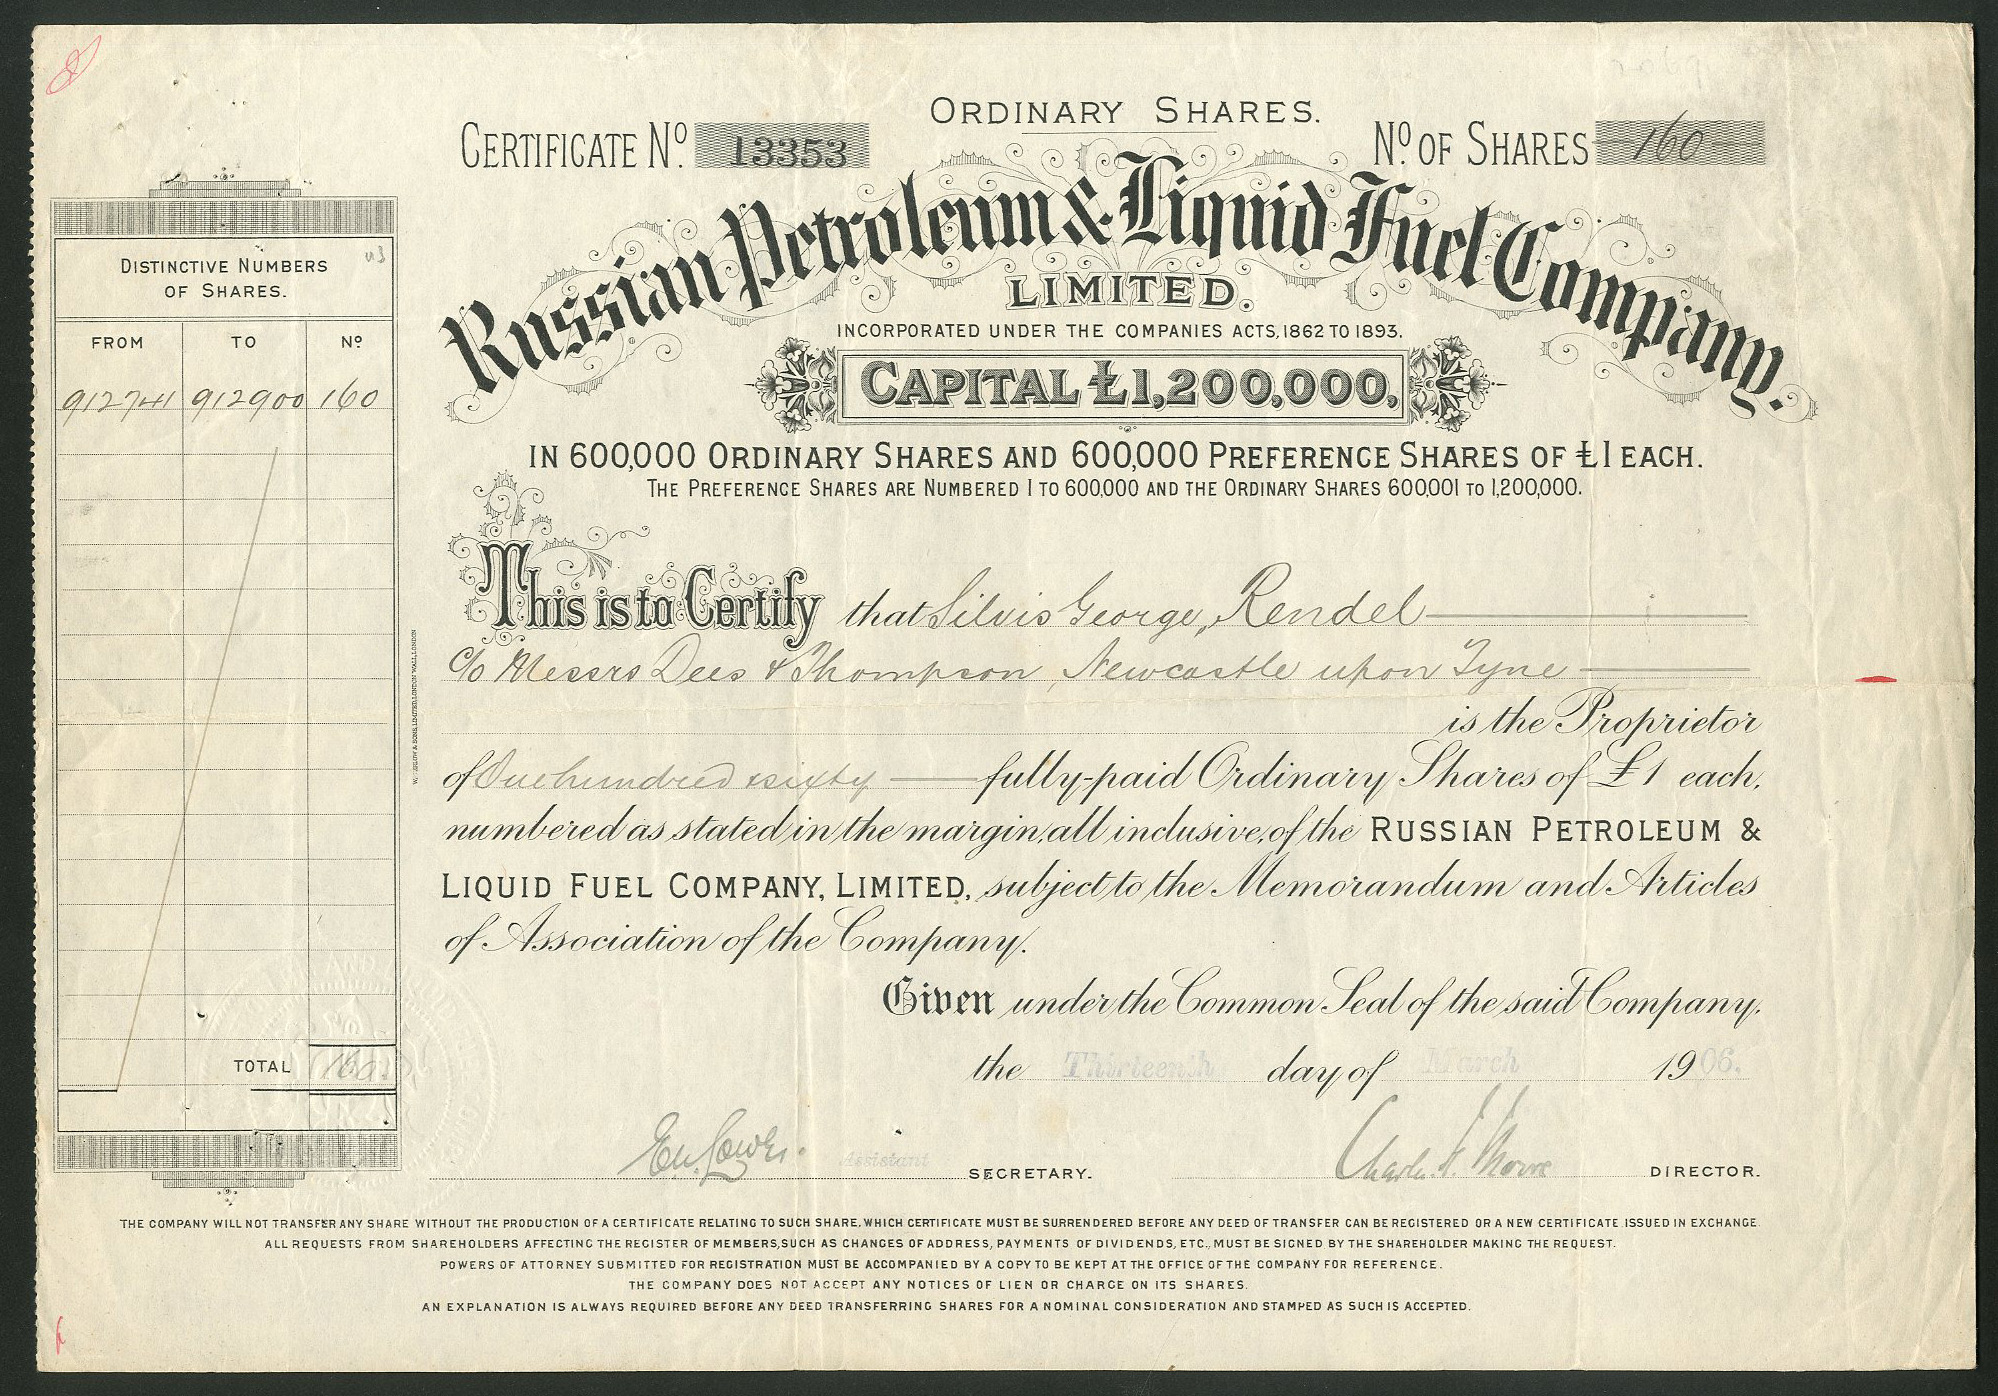 ORDINARY SHARES.
CERTIFICATE No. 13353
No. OF SHARES 160
Russian Petroleum & Liquid Fuel Company.
LIMITED.
INCORPORATED UNDER THE COMPANIES ACTS, 1862 TO 1893.
CAPITAL £1,200,000,
IN 600,000 ORDINARY SHARES AND 600,000 PREFERENCE SHARES OF £1 EACH.
THE PREFERENCE SHARES ARE NUMBERED 1 TO 600,000 AND THE ORDINARY SHARES 600,001 TO 1,200,000.
DISTINCTIVE NUMBERS
OF SHARES.
FROM TO No
912741 912900 160
TOTAL 160
This is to Certify that Silvis George, Rendel
c/o Messrs Dees & Thompson, Newcastle upon Tyne
is the Proprietor
of One hundred & sixty fully-paid Ordinary Shares of £1 each,
numbered as stated in the margin, all inclusive, of the RUSSIAN PETROLEUM &
LIQUID FUEL COMPANY, LIMITED, subject to the Memorandum and Articles
of Association of the Company.
Given under the Common Seal of the said Company,
the Thirteenth day of March 1906.
Assistant SECRETARY.
DIRECTOR.
THE COMPANY WILL NOT TRANSFER ANY SHARE WITHOUT THE PRODUCTION OF A CERTIFICATE RELATING TO SUCH SHARE, WHICH CERTIFICATE MUST BE SURRENDERED BEFORE ANY DEED OF TRANSFER CAN BE REGISTERED OR A NEW CERTIFICATE ISSUED IN EXCHANGE
ALL REQUESTS FROM SHAREHOLDERS AFFECTING THE REGISTER OF MEMBERS, SUCH AS CHANGES OF ADDRESS, PAYMENTS OF DIVIDENDS, ETC., MUST BE SIGNED BY THE SHAREHOLDER MAKING THE REQUEST.
POWERS OF ATTORNEY SUBMITTED FOR REGISTRATION MUST BE ACCOMPANIED BY A COPY TO BE KEPT AT THE OFFICE OF THE COMPANY FOR REFERENCE.
THE COMPANY DOES NOT ACCEPT ANY NOTICES OF LIEN OR CHARGE ON ITS SHARES.
AN EXPLANATION IS ALWAYS REQUIRED BEFORE ANY DEED TRANSFERRING SHARES FOR A NOMINAL CONSIDERATION AND STAMPED AS SUCH IS ACCEPTED.